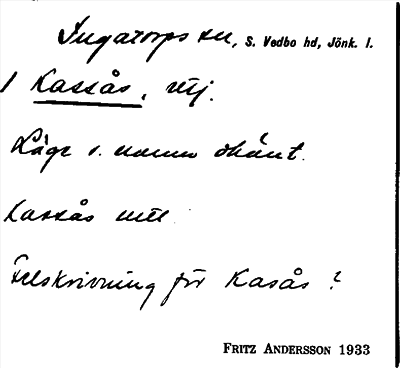 Ingatorps sn, S. Vedbo hd, Jönk. l.
1 Kassås, utj.
Läge o. namn okänt.
Kassås utj
Felskrivning för Kasås?
FRITZ ANDERSSON 1933